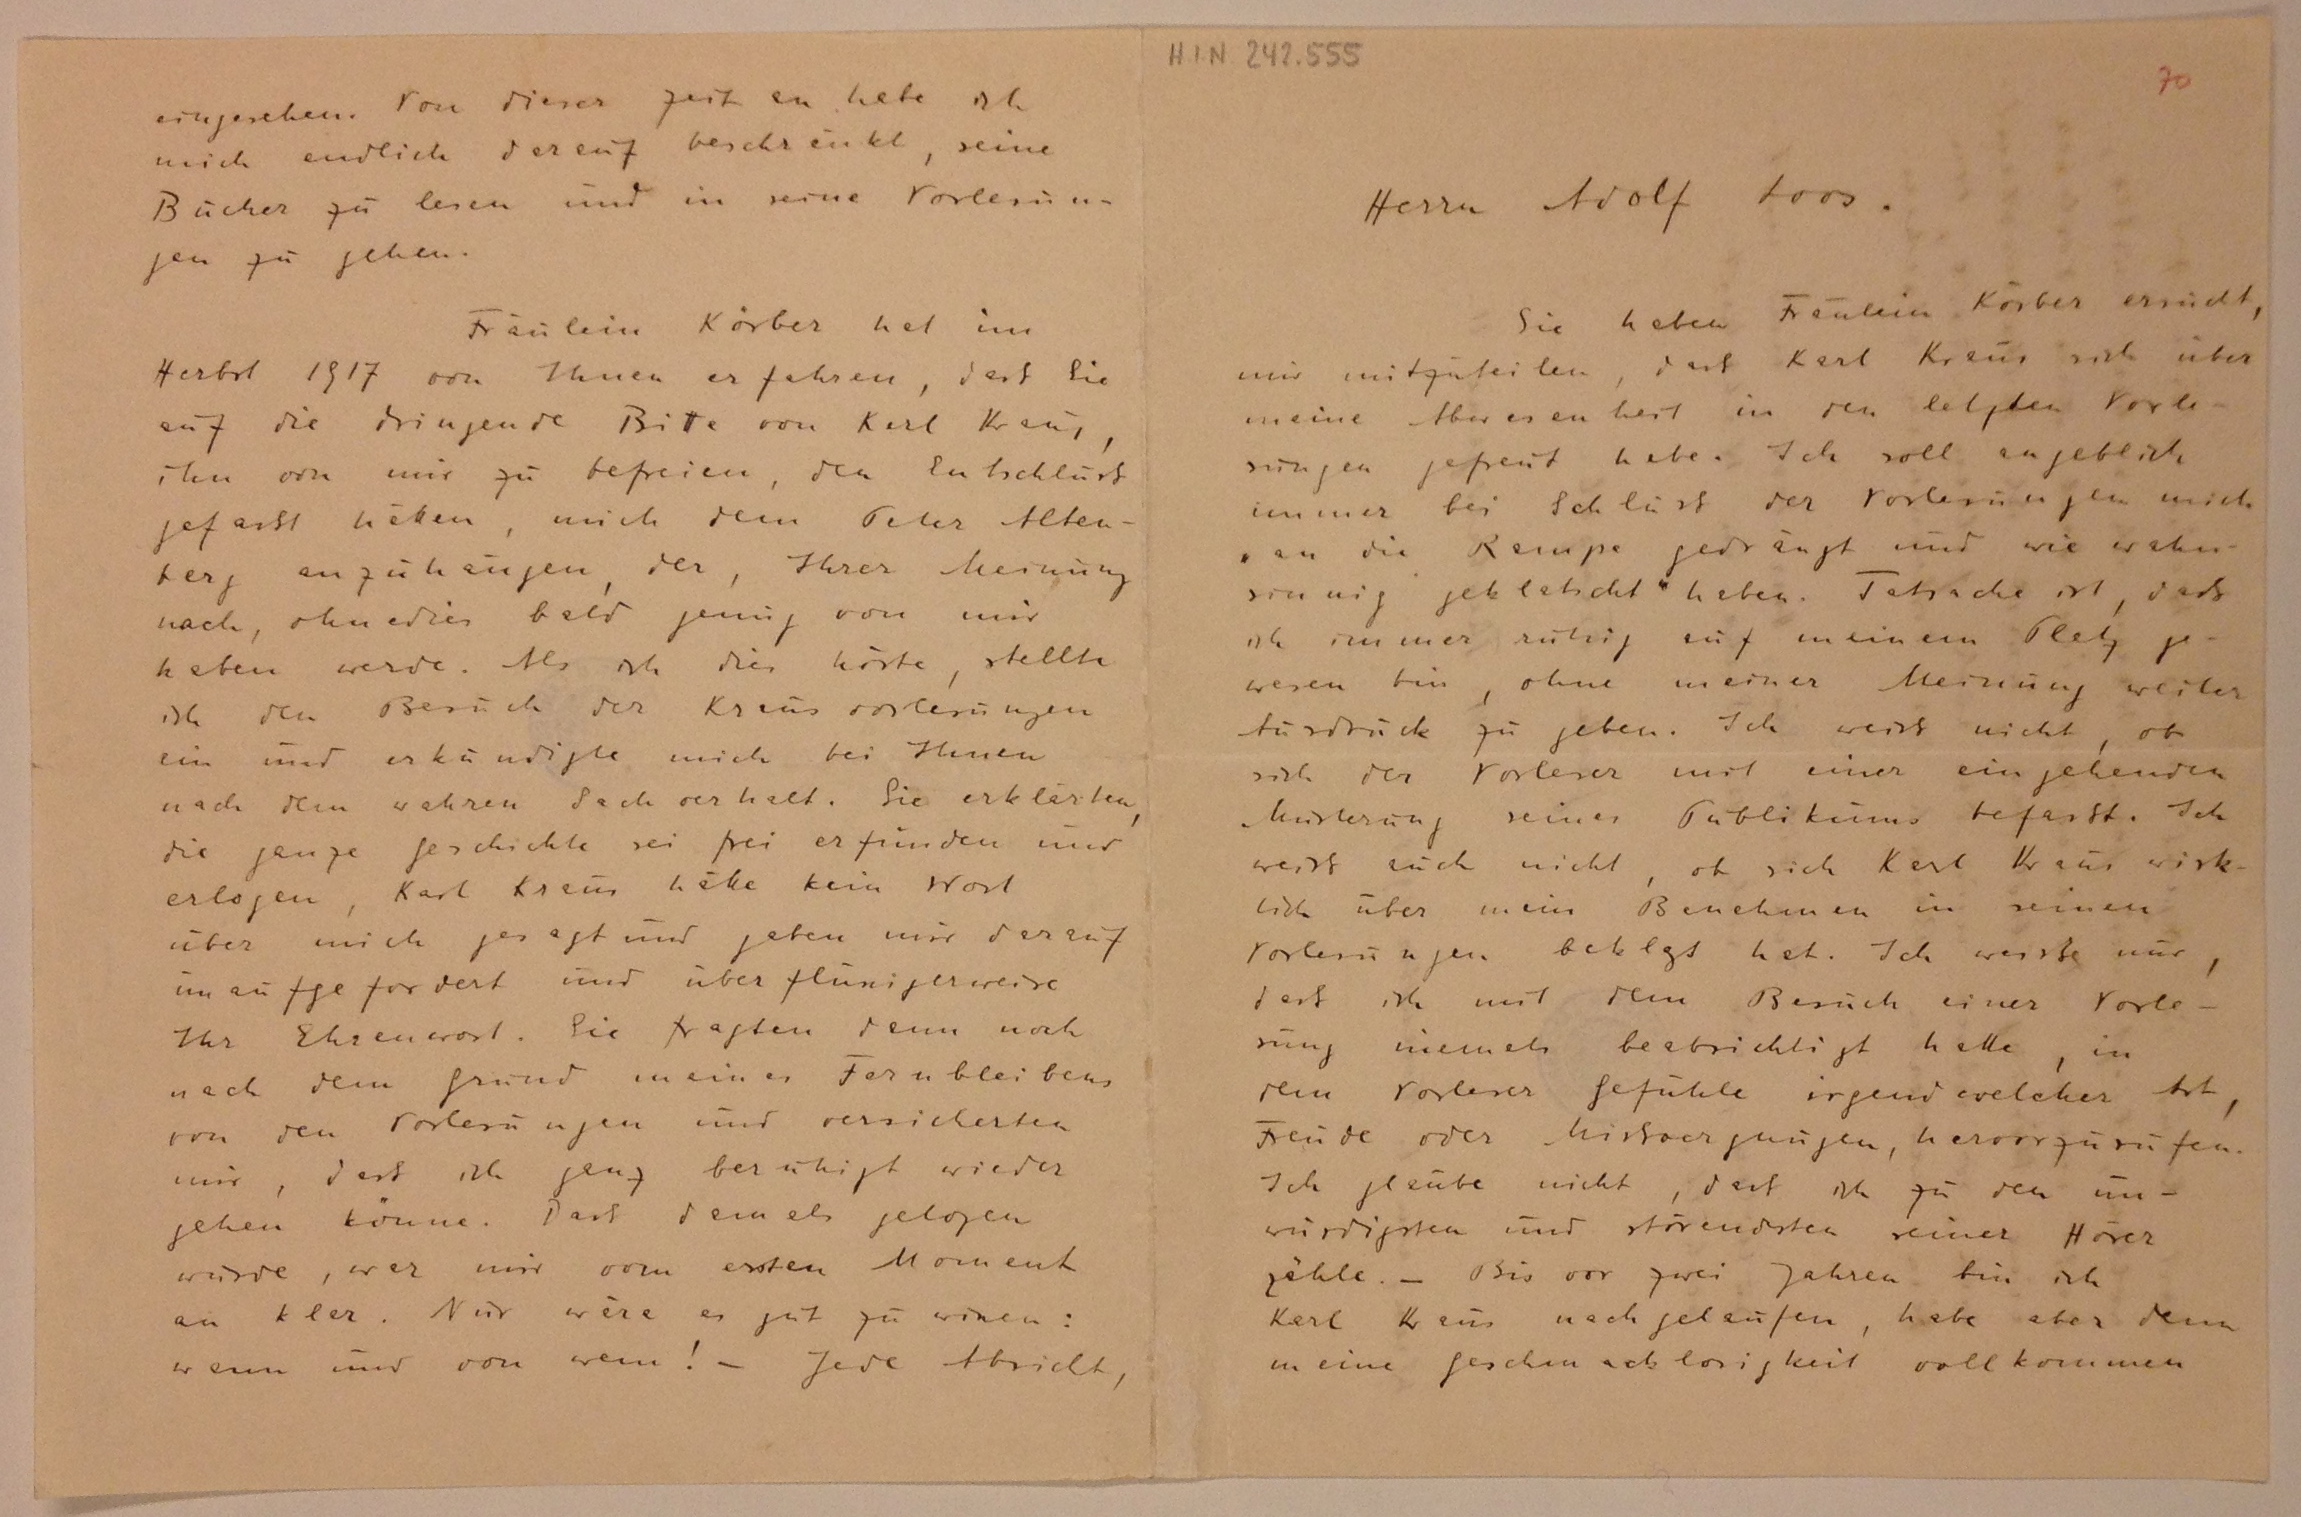 H.I.N. 242.555
70
Herrn Adolf Loos.
Sie haben Fräulein Körber ersucht,
mir mitzuteilen, dass Karl Kraus sich über
meine Abwesenheit in den letzten Vorle-
sungen gefreut habe. Ich soll angeblich
immer bei Schluss der Vorlesungen mich
„an die Rampe gedrängt und wie wahn-
sinnig geklatscht" haben. Tatsache ist, dass
ich immer ruhig auf meinem Platz ge-
wesen bin, ohne meiner Meinung weiter
Ausdruck zu geben. Ich weiss nicht, ob
sich der Vorleser mit einer eingehenden
Musterung seines Publikums befasst. Ich
weiss auch nicht, ob sich Karl Kraus wirk-
lich über mein Benehmen in seinen
Vorlesungen beklagt hat. Ich weiss nur,
dass ich mit dem Besuch einer Vorle-
sung niemals beabsichtigt hatte, in
dem Vorleser Gefühle irgendwelcher Art,
Freude oder Missvergnügen, hervorzurufen.
Ich glaube nicht, dass ich zu den un-
würdigsten und störendsten seiner Hörer
zähle. — Bis vor zwei Jahren bin ich
Karl Kraus nachgelaufen, habe aber dann
meine Geschmacklosigkeit vollkommen
eingesehen. Von dieser Zeit an habe ich
mich endlich darauf beschränkt, seine
Bücher zu lesen und in seine Vorlesun-
gen zu gehen.
Fräulein Körber hat im
Herbst 1917 von Ihnen erfahren, dass Sie
auf die dringende Bitte von Karl Kraus,
ihn von mir zu befreien, den Entschluss
gefasst hätten, mich dem Peter Alten-
berg anzuhängen, der, Ihrer Meinung
nach, ohnedies bald genug von mir
haben werde. Als ich dies hörte, stellte
ich den Besuch der Krausvorlesungen
ein und erkundigte mich bei Ihnen
nach dem wahren Sachverhalt. Sie erklärten,
die ganze Geschichte sei frei erfunden und
erlogen, Karl Kraus hätte kein Wort
über mich gesagt und gaben mir darauf
unaufgefordert und überflüssigerweise
Ihr Ehrenwort. Sie fragten dann noch
nach dem Grund meines Fernbleibens
von den Vorlesungen und versicherten
mir, dass ich ganz beruhigt wieder
gehen könne. Dass damals gelogen
wurde, war mir vom ersten Moment
an klar. Nur wäre es gut zu wissen:
wann und von wem! — Jede Absicht,